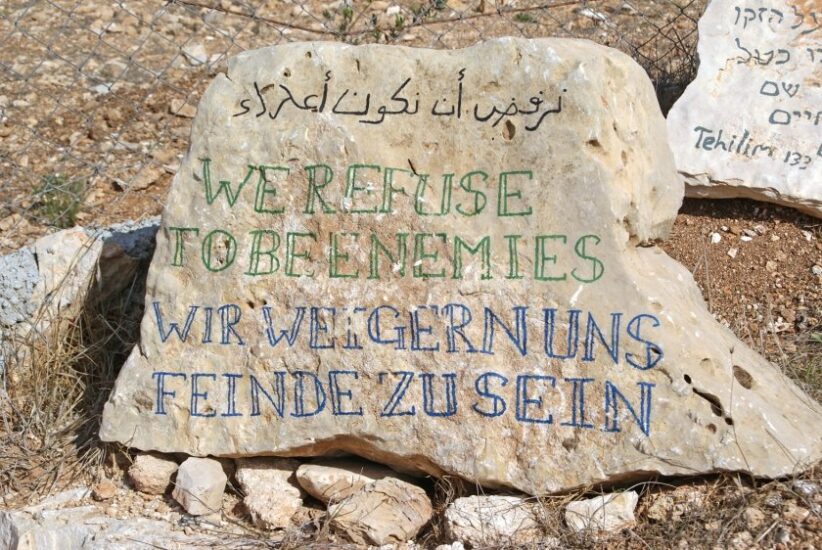 نرفض أن نكون أعداء
WE REFUSE
TO BE ENEMIES
WIR WEIGERN UNS
FEINDE ZU SEIN
על הזקן
שם
Tehilim 133